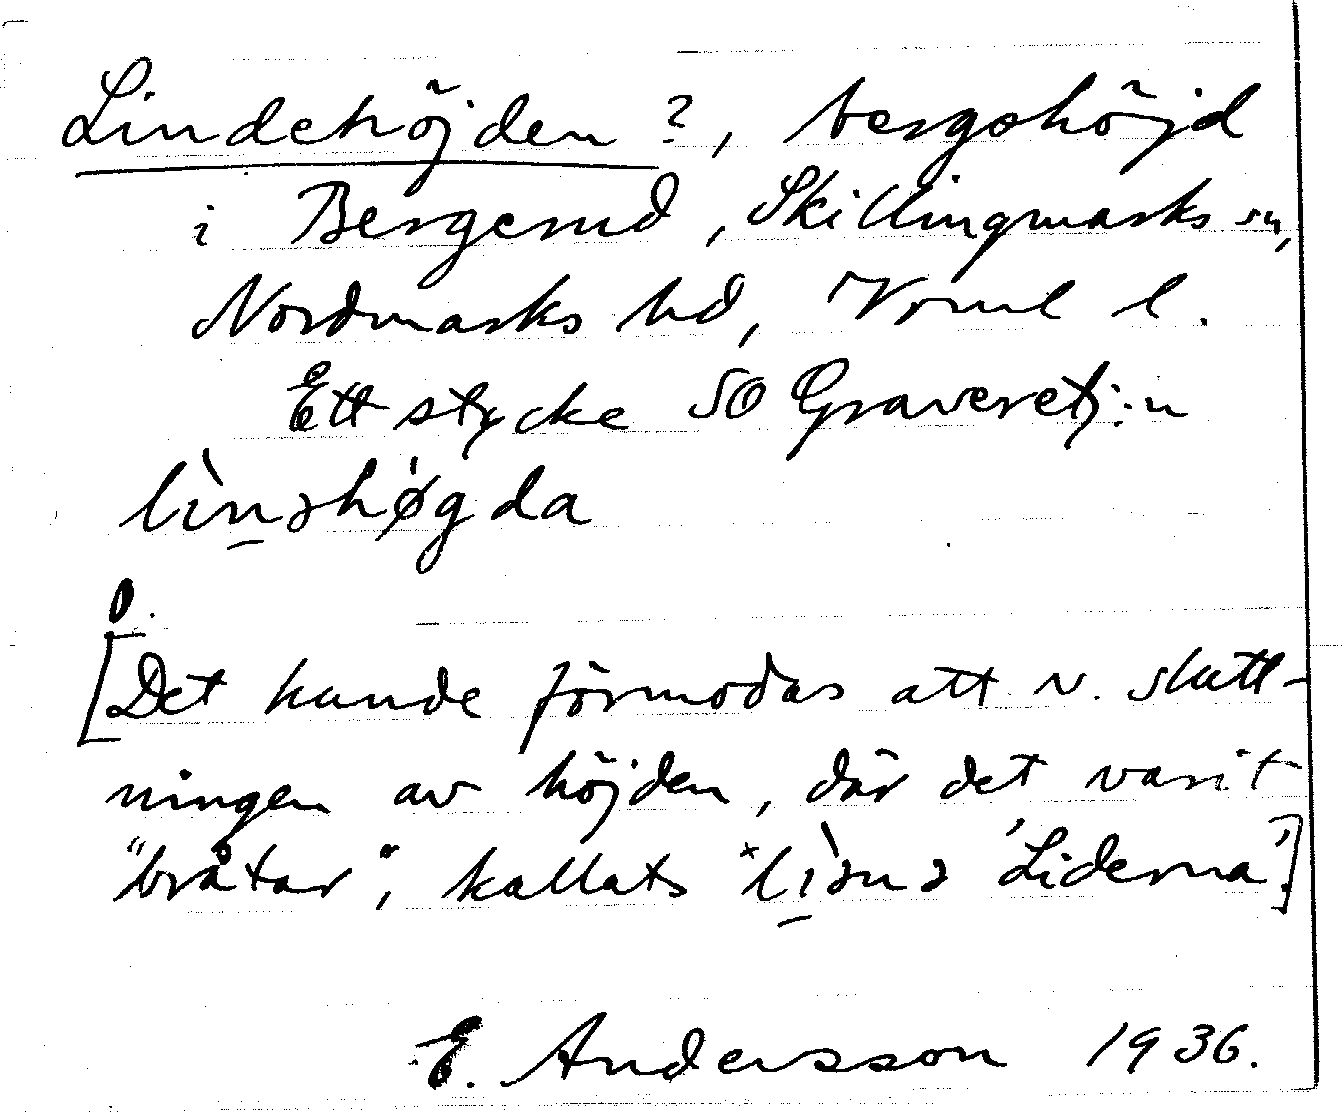 Lindehöjden ?, bergshöjd
i Bergerud, Skillingmarks sn,
Nordmarks hd, Vrml l.
Ett stycke SO Graveretj:n
lìn̠ǝhø̀gda
[Det kunde förmodas att v. slutt-
ningen av höjden, där det varit
"bråtar", kallats *lì̠ǝnǝ 'Liderna'.]
E. Andersson 1936.